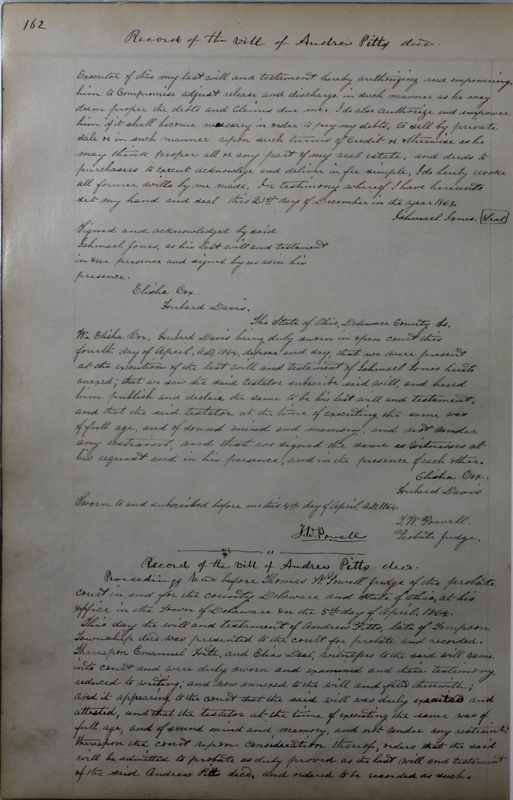 162
Record of the Will of Andrew Pitts decd.
Executor of this my last will and testament hereby authorizing and empowering
him to Compromise adjust release and discharge in such manner as he may
deem proper the debts and claims due me. I do also authorize and empower
him if it shall become necessary in order to pay my debts, to sell by private
sale or in such manner upon such terms of credit or otherwise as he
may think proper all or any part of my real estate, and deeds to
purchasers to execut acknowlege and deliver in fee simple, I do hereby revoke
all former wills by me made. In testimony whereof I have hereunto
set my hand and seal this 21st day of December in the year 1863.
Ishmael Jones. Seal
Signed and acknowledged by said
Ishmael Jones, as his last will and testament
in our presence and signed by us as in his
presence.
Elisha Cox.
Hubard Davis.
The State of Ohio, Delaware County Ss.
We Elisha Cox. Hubard Davis being duly sworn in open court this
fourth day of April, A.D, 1864, depose and say, that we were present
at the execution of the last will and testament of Ishmael Jones hereto
anexed; that we saw the said testator subscribe said will, and heard
him publish and declare the same to be his last will and testament,
and that the said testator at the time of executing the same was
of full age, and of sound mind and memory, and not under
any restraint, and that we signed the same as Witnesses at
his request and in his presence, and in the presence of each other.
Elisha Cox.
Hubard Davis
Sworn to and subscribed before me this 4th day of April, A.D, 1864.
T. W. Powell.
T. W. Powell Probate judge.
Record of the will of Andrew Pitts decd.
Proceedings had before Thomas W Powell judge of the probate
court in and for the county Delaware and State of Ohio, at his
office in the Town of Delaware on the 5th day of April, 1864.
This day the will and testament of Andrew Pitts, late of Thompson
Township decd was presented to the court for probate and recorder.
Thereupon Emanuel and Elias Deal, witnesses to the said will came
into court and were duly sworn and examined and their testimony
reduced to writing; and now annexed to the will and filed therewith;
and it appearing to the court that the said will was duly executed and
attested, and that the testator at the time of executing the same was of
full age, and of sound mind and memory, and not under any restraint;
thereupon the court upon consideration thereof, orders that the said
will be admitted to probate as duly proved as the last will and testament
of the said Andrew Pitts decd, and ordered to be recorded as such.